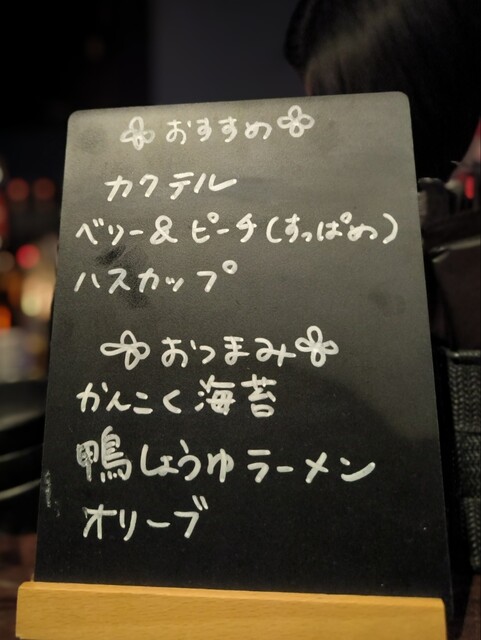 おすすめ
カクテル
ベリー＆ピーチ(すっぱめ)
ハスカップ
おつまみ
かんこく海苔
鴨しょうゆラーメン
オリーブ